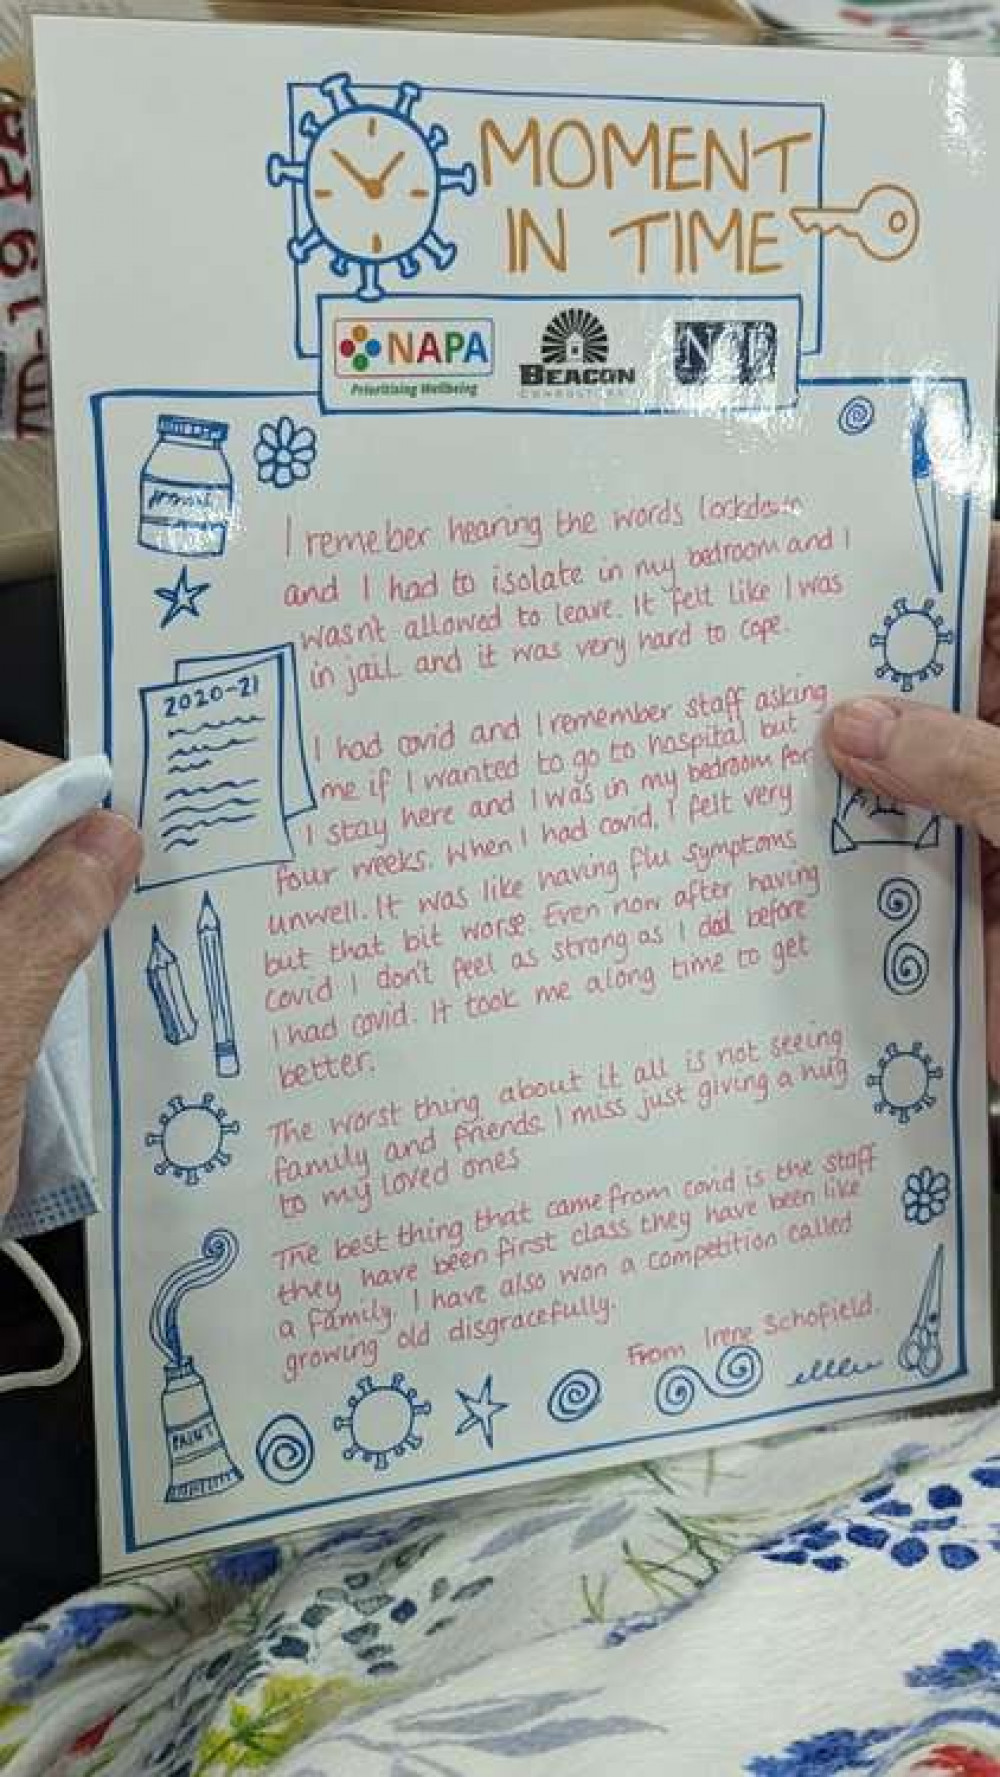 MOMENT
IN TIME
NAPA
Prioritising Wellbeing
BEACON
2020-21
I remeber hearing the words lockdown
and I had to isolate in my bedroom and I
wasn't allowed to leave. It felt like I was
in jail and it was very hard to cope.
I had covid and I remember staff asking
me if I wanted to go to hospital but
I stay here and I was in my bedroom for
four weeks. When I had covid, I felt very
unwell. It was like having flu symptoms
but that bit worse. Even now after having
covid I don't feel as strong as I did before
I had covid. It took me along time to get
better.
The worst thing about it all is not seeing
family and friends. I miss just giving a hug
to my loved ones
The best thing that came from covid is the staff
they have been first class they have been like
a family. I have also won a competition called
growing old disgracefully.
From Irene Schofield.
PAINT